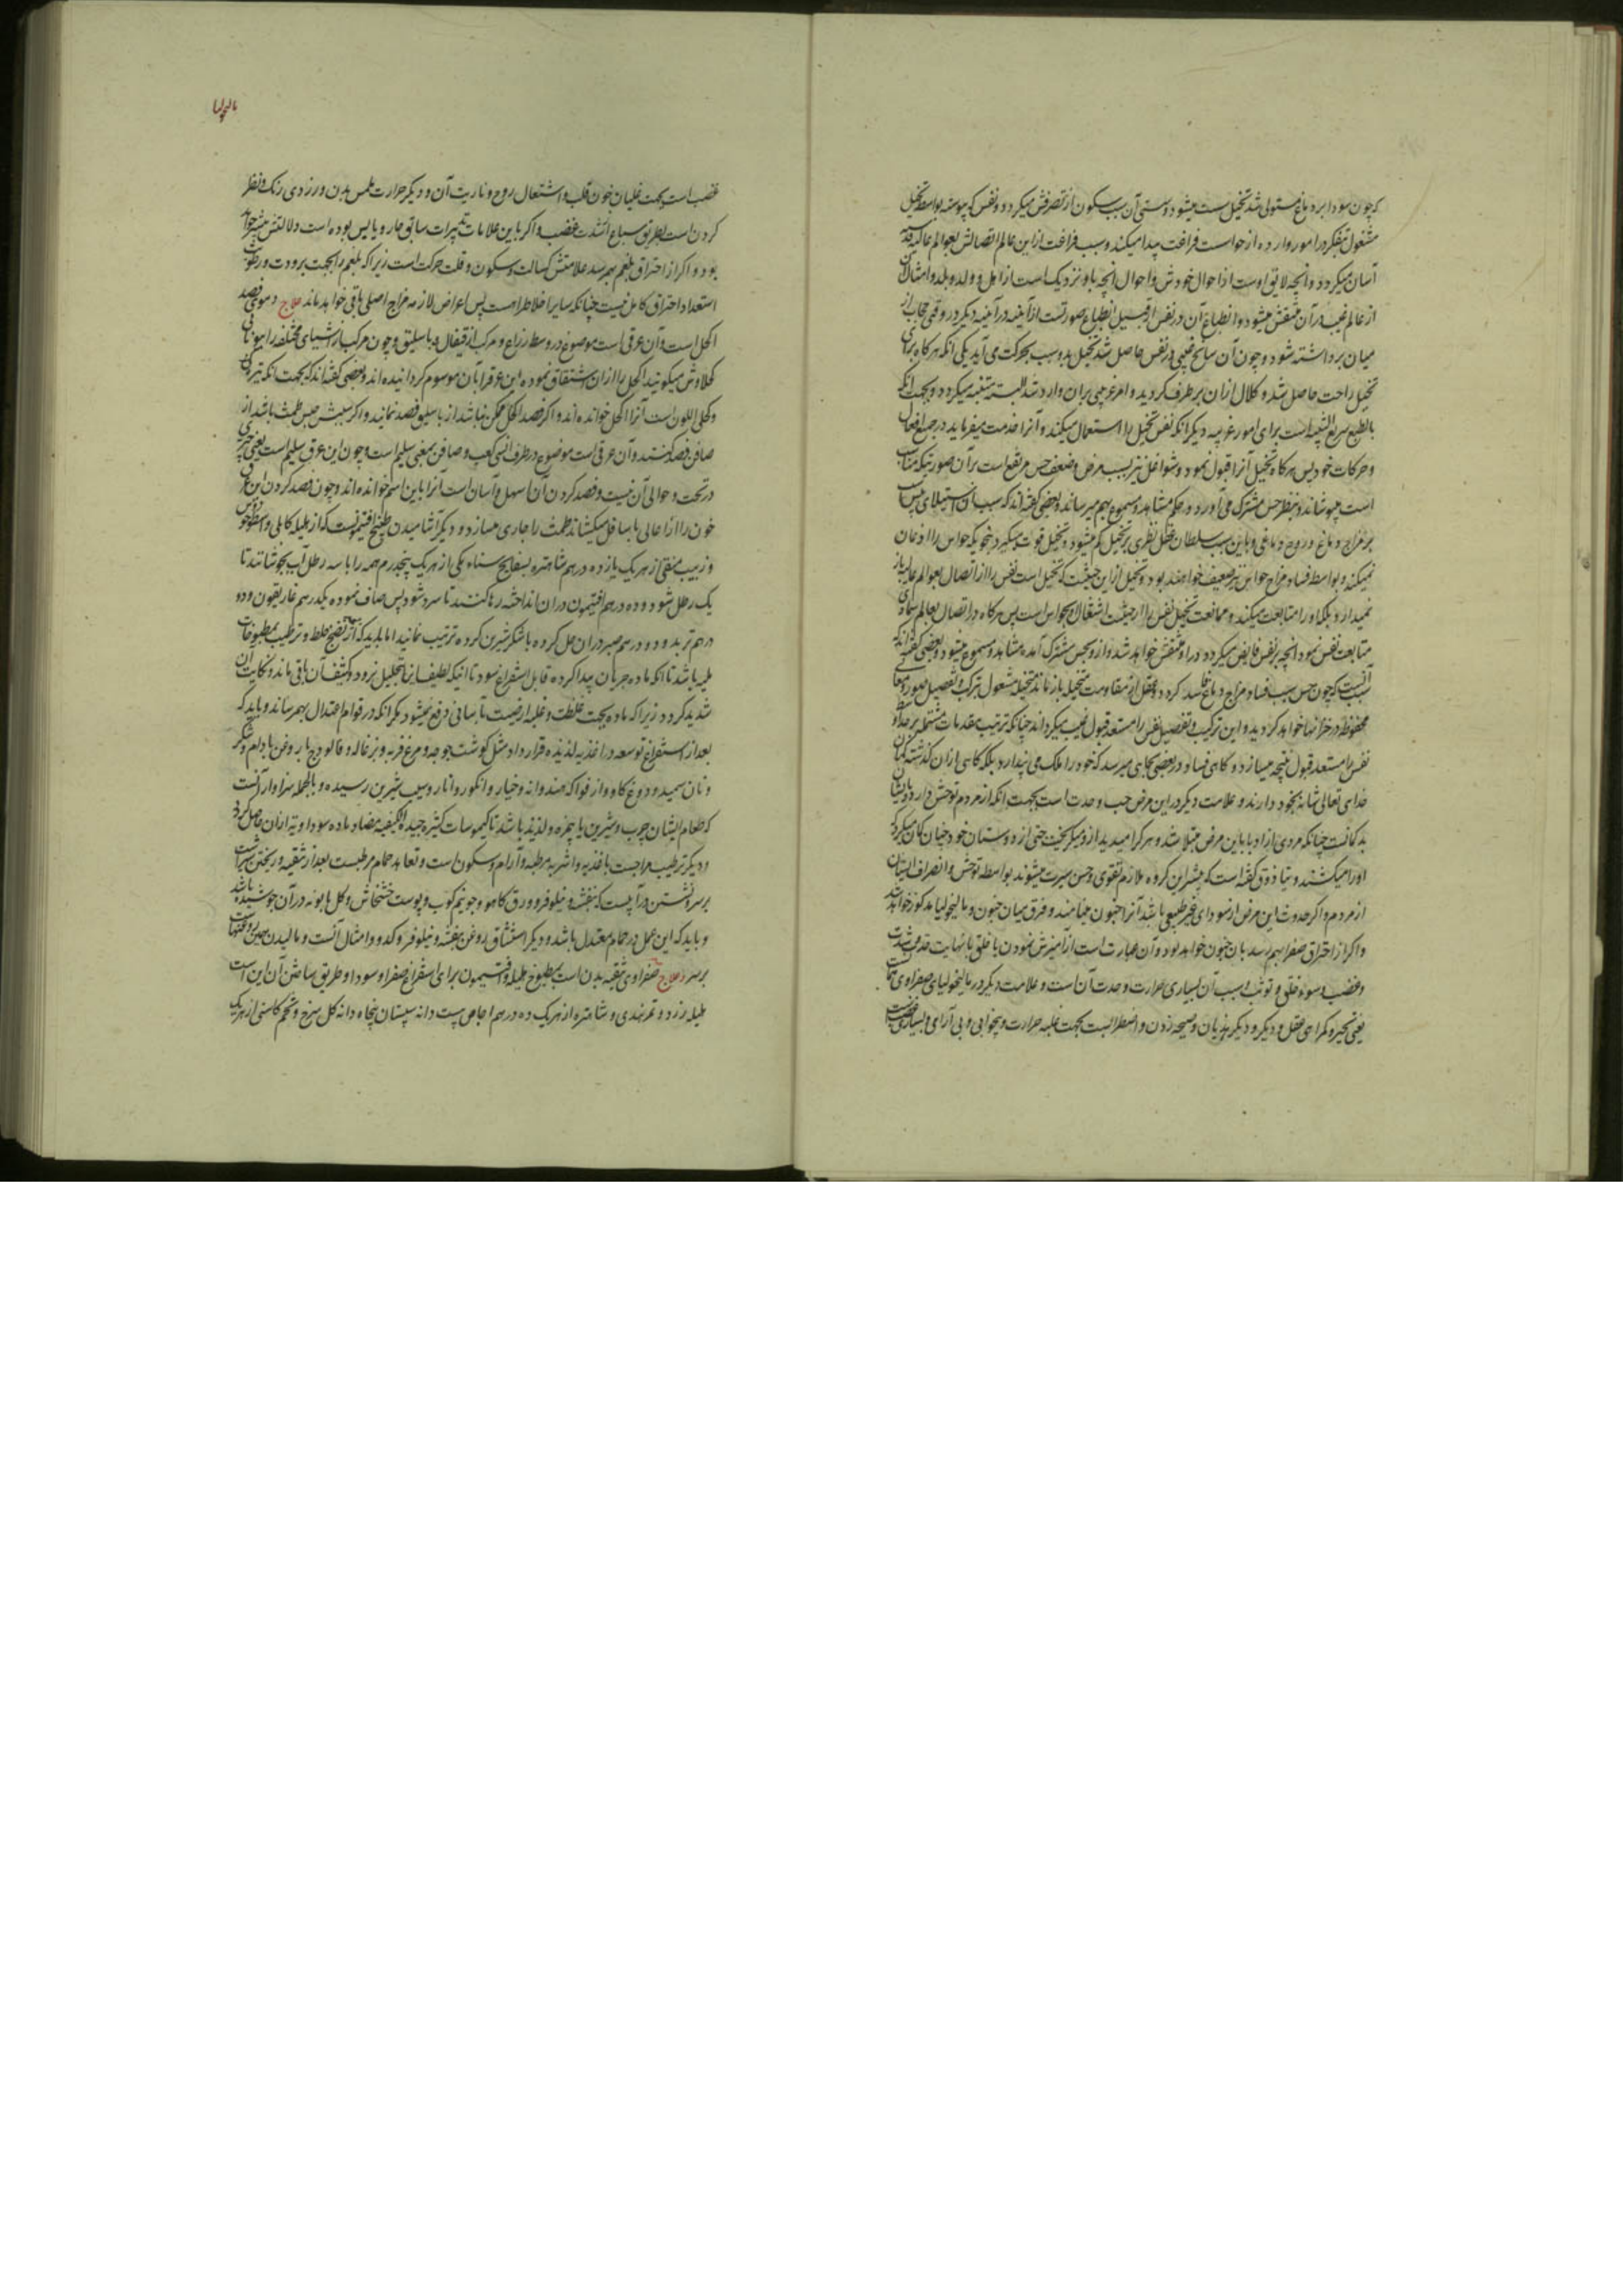 که چون سودا بر دماغ مستولی شد تخیل سست میشود و سستی آن سبب سکون از تصرفش میکردد و نفس که پیوسته بواسطه تخیل
مشغول بتفکر در امور وارده از حواست فراغت پیدا میکند و سبب فراغت از این عالم اتصالش بعوالم عالیه قدسیه
آسان میکردد و آنچه لایق اوست از احوال خودش و احوال آنچه باو نزدیک است از اهل و ولد و بلد و امثال آن
از عالم غیب در آن منتقش میشود و انطباع آن در نفس از قبیل انطباع صورتست از آینه در آینه دیکر در وقتی که حجاب از
میان برداشته شود و چون آن سانح غیبی در نفس حاصل شد تخیل بدو سبب بحرکت می آید یکی آنکه هرکاه برای
تخیل راحت حاصل شد و کلال از ان بر طرف کردید و امر غریبی بران وارد شد البته متنبه میکردد و بجهت آنکه
بالطبع سریع التنبه است برای امور غریبه دیکر آنکه نفس تخیل را استعمال میکند و آنرا خدمت میفرماید در جمیع افعال
و حرکات خود پس هرکاه تخیل آنرا قبول نمود و شواغل نیز بسبب مرض و ضعف حس مرتفع است بر آن صورتیکه مناسب
است میپوشاند و بنظر حس مشترک می آورد و در حکم مشاهد و مسموع بهم میرساند و بعضی گفته اند که سبب آن استیلای یبس است
بر مزاج دماغ و روح دماغی و باین سبب سلطان عقل نظری بر تخیل کم میشود و تخیل قوت میگیرد بنحویکه حواس را اذعان
نمیکند و بواسطه فساد مزاج حواس نیز ضعیف خواهند بود و تخیل از این حیثیت که تخیل است نفس را از اتصال بعوالم عالیه باز
نمیدارد بلکه او را متابعت میکند و ممانعت تخیل نفس را از حیثیت اشتغال آن بحواس است پس هرکاه در اتصال بعالم سماوی
متابعت نفس نمود آنچه بر نفس فایض میکردد در او منتقش خواهد شد و از و بحس مشترک آمده مشاهد و مسموع میشود و بعضی گفته اند که
سبب آنست که چون حس بسبب فساد مزاج دماغ فاسد کردد و عقل از مقاومت متخیله باز ماند متخیله مشغول ترکیب و تفصیل صور و معانی
محفوظه در خزانها خواهد کردید و این ترکیب و تفصیل نفس را مستعد قبول غیب میکرداند چنانکه ترتیب مقدمات مشتمله بر حد اوسط
نفس را مستعد قبول نتیجه میسازد و کاهی فساد در بعضی بجایی میرسد که خود را ملک می پندارد بلکه کاهی از ان کذشته کمان
خدای تعالی شانه بخود دارند و علامت دیکر در این مرض حب وحدت است بجهت آنکه از مردم توحش دارد و بایشان
بد کمانست چنانکه مردی از ادبا باین مرض مبتلا شد و هرکرا میدید از و میکریخت حتی از دوستان خود چنان کمان میکرد که
او را میکشند و تیاذوق گفته است که بیشتر این کروه ملازم تقوی و حسن سیرت میشوند بواسطه توحش و انصراف ایشان
از مردم و اکر حدوث این مرض از سودای غیر طبیعی باشد آنرا جنون مینامند و فرق میان جنون و مالیخولیا مذکور خواهد شد
واکر از احتراق صفرا بهم رسد با جنون خواهد بود و آن عبارت است از آمیزش نمودن با خلق با نهایت
و غضب و سوء خلق و توثب و سبب آن بسیاری حرارت و حدت آن است و علامت دیکر در مالیخولیای صفراوی
یعنی تحیر و کمراهی عقل و دیکر هذیان و صیحه زدن و اضطرابست بجهت غلبه حرارت و بیخوابی و بی آرامی و بسیاری
مالیخولیا
غضب است بجهت غلیان خون قلب و اشتعال روح و ناریت آن و دیکر حرارت ملمس بدن و زردی رنک و نظر
کردن است بطریق سباع از شدت غضب و اکر با این علامات تدبیرات سابق حار و یابس بوده است دلالتش بیشتر خواهد
بود و اکر از احتراق بلغم بهم رسد علامتش کسالت و سکون و قلت حرکت است زیرا که بلغم را بجهت برودت و رطوبت
استعداد احتراق کامل نیست چنانکه سایر اخلاط راهست پس اعراض لازمه مزاج اصلی باقی خواهد ماند علاج دموی فصد
اکحل است و آن عرقی است موضوع در وسط ذراع و مرکب از قیفال و باسلیق و چون مرکب از اشیای مختلفه را بیونانی
کلاوش میکویند اکحل را از ان اشتقاق نموده این عرق را بان موسوم کردانیده اند و بعضی گفته اند که بجهت آنکه تیره رنگ
و کحلی اللون است آنرا اکحل خوانده اند و اکر فصد اکحل ممکن نباشد از باسلیق فصد نمایند و اکر سببش حبس طمث باشد از
صافن فصد کنند و آن عرقی است موضوع در طرف انسی کعب و صافن بمعنی سلیم است و چون این عرق سلیم است یعنی چیزی
در تحت و حوالی آن نیست و فصد کردن آن اسهل و آسان است آنرا باین اسم خوانده اند و چون فصد کردن این عرق
خون را از اعالی باسافل میکشاند طمث را جاری میسازد و دیکر آشامیدن طبیخ افتیمونست که از هلیله کابلی و اسطوخودوس
و زبیب منقی از هر یک پانزده درهم شاهتره بسفایج سناء مکی از هر یک پنجدرم همه را با سه رطل آب بجوشانند تا
یک رطل شود و ده درهم افتیمون دران انداخته رها کنند تا سرد شود پس صاف نموده یکدرهم غاریقون و دو
درهم تربد و دو درهم صبر دران حل کرده با شکر شیرین کرده ترتیب نمایند اما باید که از پی نضج خلط و ترطیب بمطبوخات
ملینه باشد تا آنکه ماده جریان پیدا کرده قابل استفراغ شود نه اینکه لطیف آن بتحلیل برود و کثیف آن باقی ماند و نکایت آن
شدید کردد زیرا که ماده بجهت غلظت و غلبه ارضیت بآسانی دفع نمیشود مکر آنکه در قوام اعتدال بهم رساند و باید که
بعد از استفراغ توسعه در اغذیه لذیذه قرار داد مثل گوشت جوجه و مرغ فربه و بزغاله و فالودج با روغن بادام و شکر
و نان سمید و دوغ گاو و از فواکه هندوانه و خیار و انکور و انار و سیب شیرین رسیده و بالجمله سزاوار آنست
که طعام ایشان چرب و شیرین یا بیمزه و لذیذ باشد تا کیموسات کثیره جیده الکیفیه مضاد ماده سوداویه از ان حاصل کردد
و دیکر ترطیب مزاجست باغذیه و اشربه مرطبه و آرام و سکون است و تعاهد حمام مرطبست بعد از تنقیه و ریختن شیر است
بر سر و نشستن در آبیست که بنفشه و نیلوفر و ورق کاهو و جو نیم کوب و پوست خشخاش و کل بابونه در آن جوشیده باشد
و باید که این عمل در حمام معتدل باشد و دیکر استنشاق بروغن بنفشه و نیلوفر و کدو و امثال آنست و مالیدن
بر سر و علاج صفراوی تنقیه بدن است بمطبوخ هلیله و افتیمون برای استفراغ صفرا و سودا و طریق ساختن آن این است
هلیله زرد و تمر هندی و شاهتره از هر یک ده درهم اجاص بیست دانه سپستان پنجاه دانه کل سرخ و تخم کاسنی از هر یک